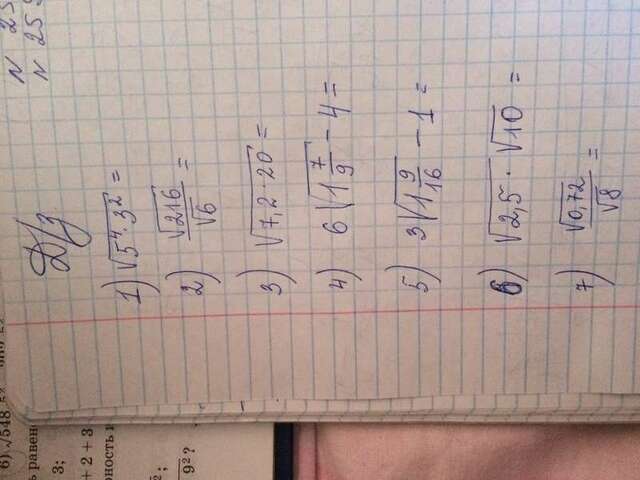 6) √548,5² − 389,5²
ь равен
3;
+ 2 + 3
ность и
9²?
N 25
N 259
Д/з
1) √(5⁴ · 3²) =
2) √216 / √6 =
3) √(7,2 · 20) =
4) 6 √(1 7/9) − 4 =
5) 3 √(1 9/16) − 1 =
6) √2,5 · √10 =
7) √0,72 / √8 =